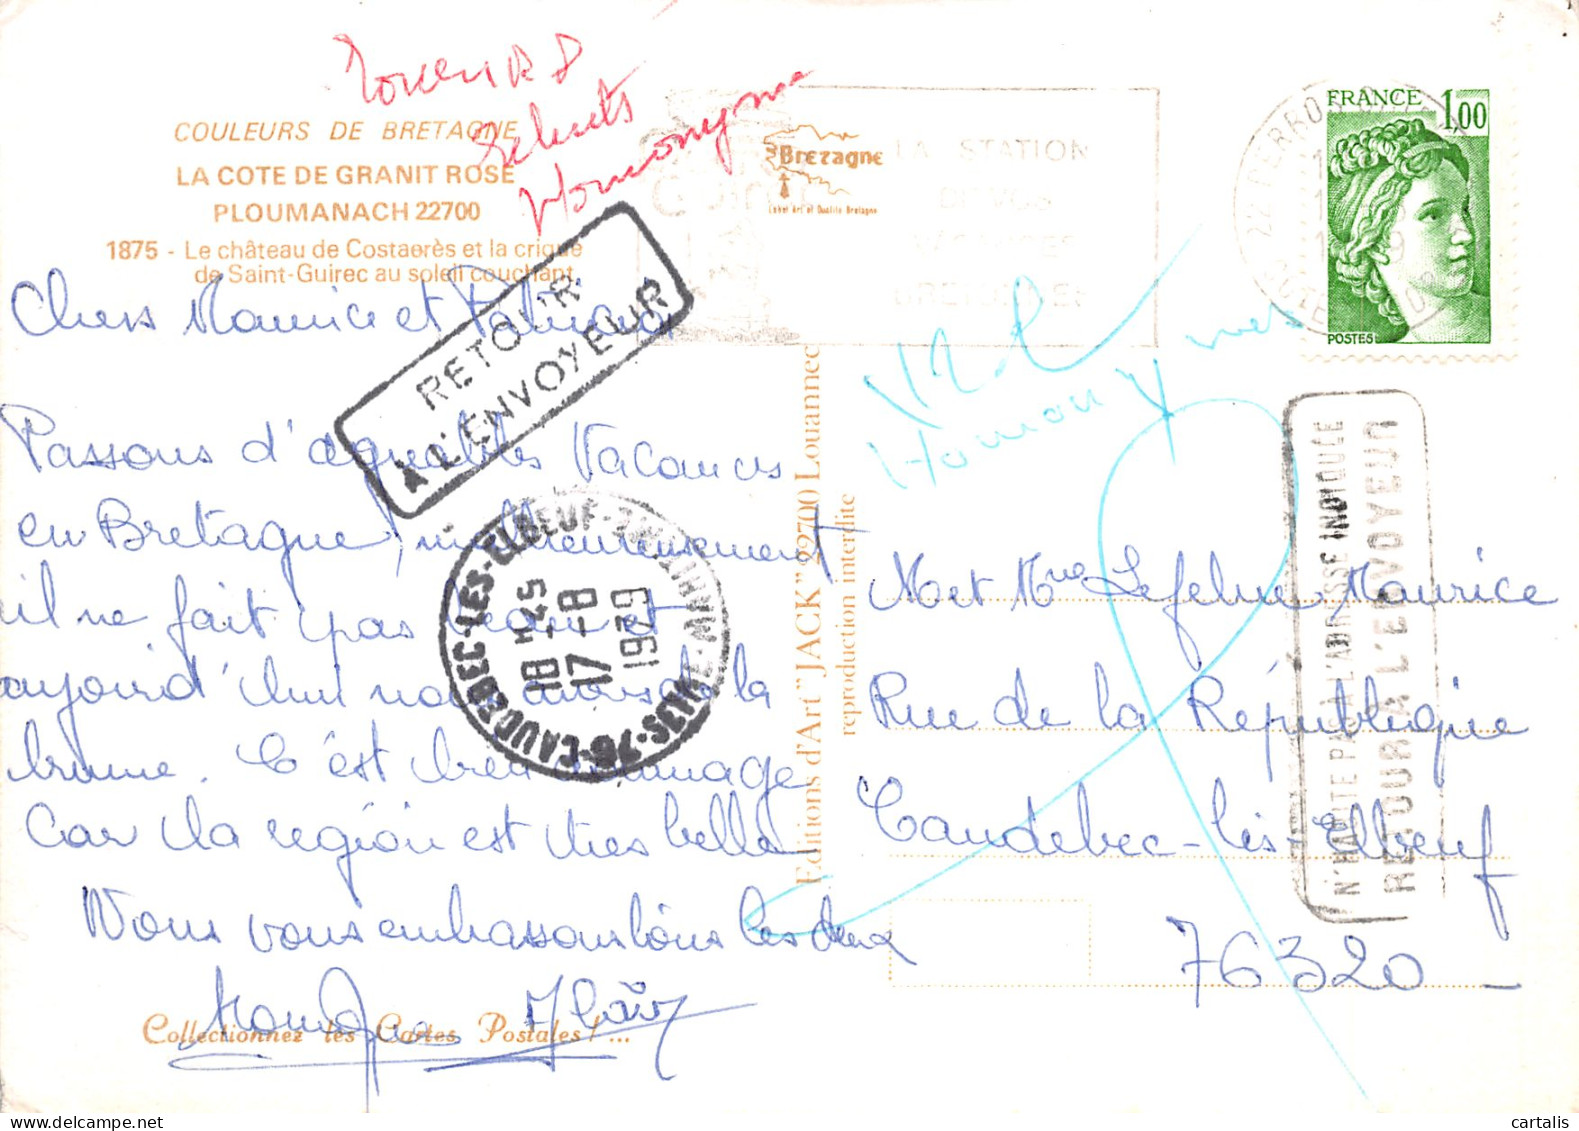 COULEURS DE BRETAGNE
LA COTE DE GRANIT ROSE
PLOUMANACH 22700
1875 - Le château de Costaerès et la crique
de Saint-Guirec au soleil couchant
Homonyme
Bretagne
Label Art et Qualité Bretagne
LA STATION
DE VOS
VACANCES
BRETONNES
FRANCE 1,00
POSTES
RETOUR
À L'ENVOYEUR
Chers Maurice et
Passons d'agréables Vacances
en Bretagne, malheureusement
il ne fait pas beau et
aujourd'hui nous avons de la
brume. C'est bien dommage
car la région est très belle
Nous vous embrassons bien les deux
Collectionnez les Cartes Postales !...
76-CAUDEBEC-LES-ELBEUF-SEINE-MARITIME
18 H 45
17-8
1979
Editions d'Art "JACK" 22700 Louannec
reproduction interdite
Homonymes
M et Mme Lefebvre Maurice
Rue de la République
Caudebec-lès-Elbeuf
76320
N'HABITE PAS À L'ADRESSE INDIQUÉE
RETOUR A L'ENVOYEUR